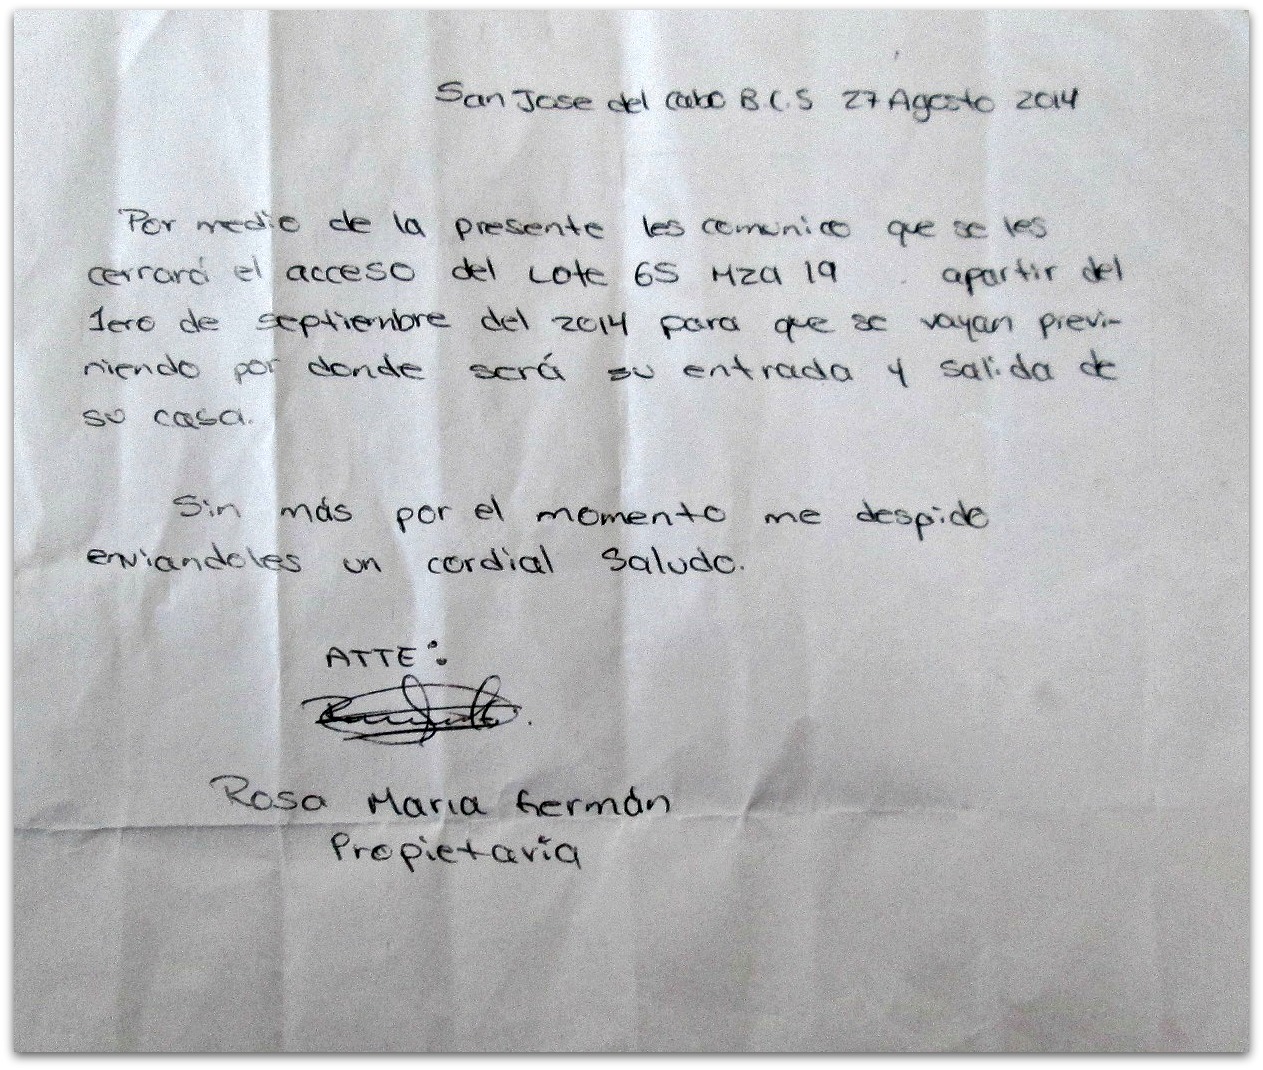 San Jose del Cabo B.C.S 27 Agosto 2014
Por medio de la presente les comunico que se les
cerrará el acceso del Lote 6S Mza 19 apartir del
1ero de septiembre del 2014 para que se vayan previ-
niendo por donde será su entrada y salida de
su casa.
Sin más por el momento me despido
enviandoles un cordial Saludo.
ATTE:
Rosa Maria Germán
Propietaria